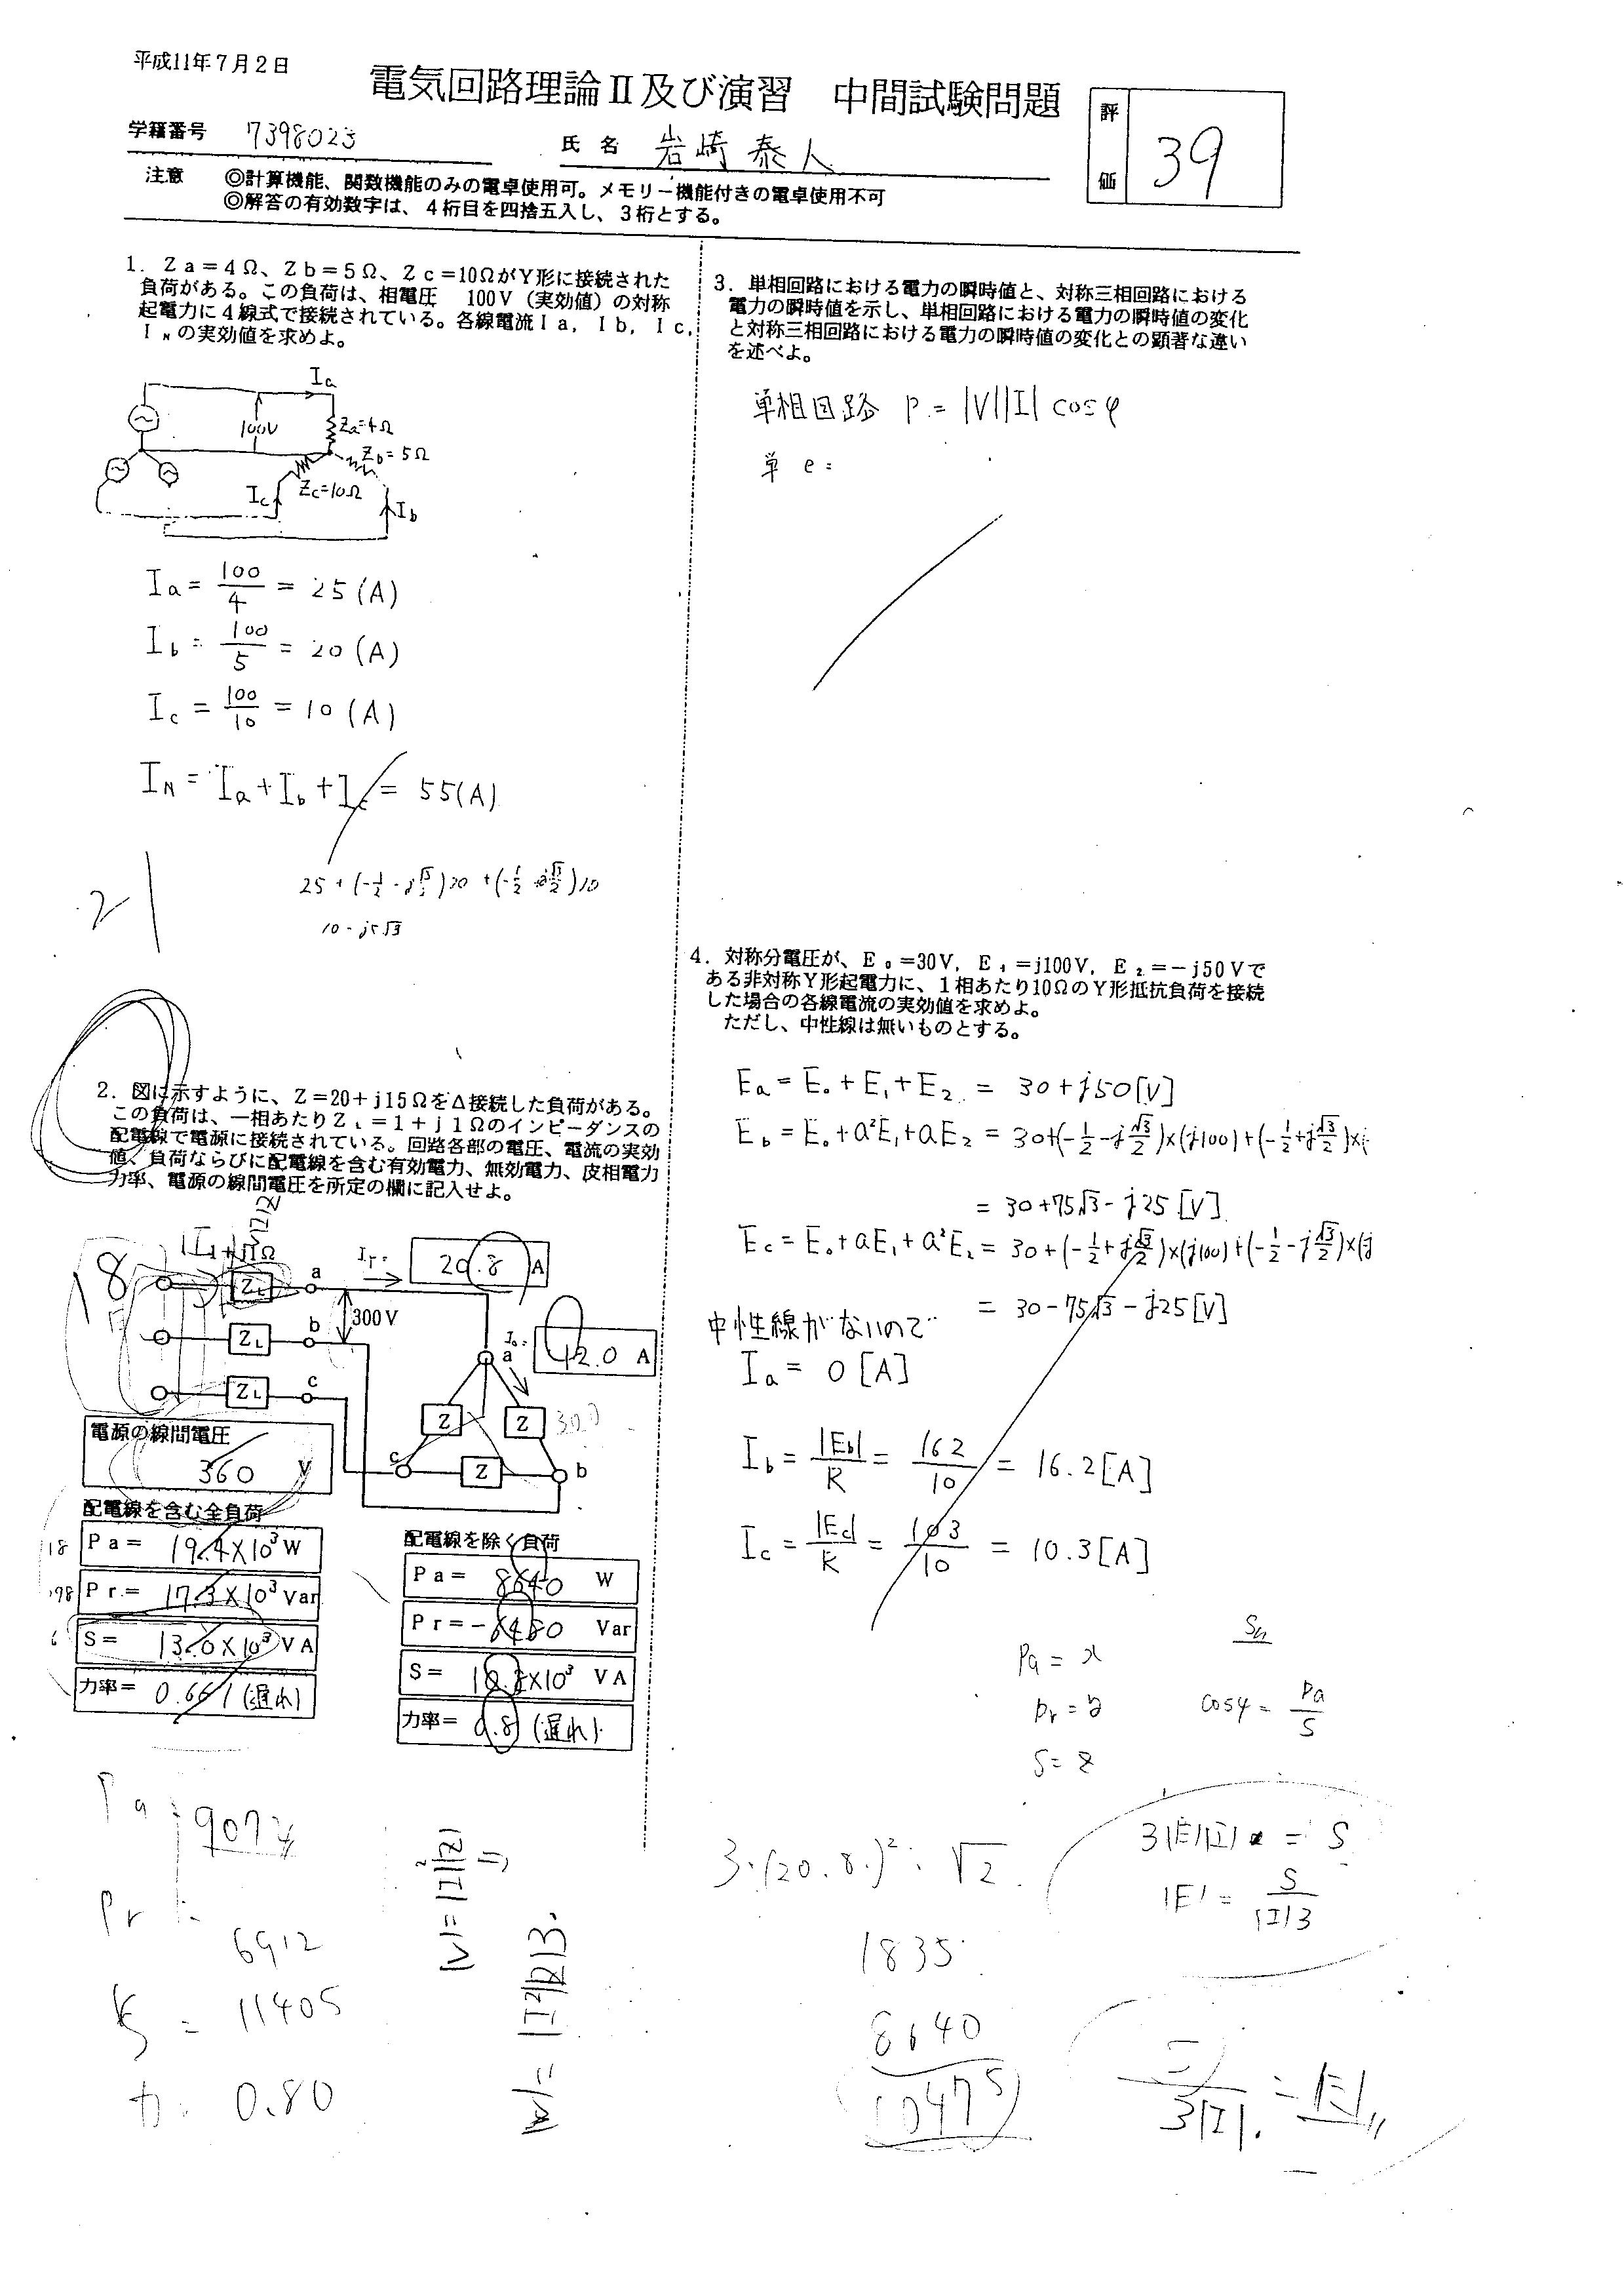 平成11年7月2日
電気回路理論Ⅱ及び演習　中間試験問題
学籍番号　7398023
氏名　岩崎 泰人
評価　39
注意　◎計算機能、関数機能のみの電卓使用可。メモリー機能付きの電卓使用不可
◎解答の有効数字は、4桁目を四捨五入し、3桁とする。
1．Za＝4Ω、Zb＝5Ω、Zc＝10ΩがY形に接続された
負荷がある。この負荷は、相電圧　100V（実効値）の対称
起電力に4線式で接続されている。各線電流Ia，Ib，Ic，
I_Nの実効値を求めよ。
Ia
100V
Za=4Ω
Zb=5Ω
Zc=10Ω
Ic
Ib
Ia = 100/4 = 25 (A)
Ib = 100/5 = 20 (A)
Ic = 100/10 = 10 (A)
I_N = Ia + Ib + Ic = 55(A)
25 + (-1/2 - j√3/2)20 + (-1/2 + j√3/2)10
10 - j5√3
21
2．図に示すように、Z＝20＋j15ΩをΔ接続した負荷がある。
この負荷は、一相あたりZ_L＝1＋j1Ωのインピーダンスの
配電線で電源に接続されている。回路各部の電圧、電流の実効
値、負荷ならびに配電線を含む有効電力、無効電力、皮相電力
力率、電源の線間電圧を所定の欄に記入せよ。
18
Z_L
a
20.8 A
300V
Z_L
b
12.0 A
a
Z_L
c
Z
Z
300
c
Z
b
電源の線間電圧
360 V
配電線を含む全負荷
Pa＝ 19.4×10³ W
Pr＝ 17.3×10³ Var
S＝ 13.0×10³ VA
力率＝ 0.661 (遅れ)
配電線を除く負荷
Pa＝ 8640 W
Pr＝-6480 Var
S＝ 10.8×10³ VA
力率＝ 0.8 (遅れ)
Pa = 9074
Pr =
6912
S = 11405
力 0.80
|V| = |I²||Z|
3・(20.8)²・√2
1835
8640
10475
3．単相回路における電力の瞬時値と、対称三相回路における
電力の瞬時値を示し、単相回路における電力の瞬時値の変化
と対称三相回路における電力の瞬時値の変化との顕著な違い
を述べよ。
単相回路 P = |V||I| cosφ
単 e =
4．対称分電圧が、E₀＝30V，E₁＝j100V，E₂＝－j50Vで
ある非対称Y形起電力に、1相あたり10ΩのY形抵抗負荷を接続
した場合の各線電流の実効値を求めよ。
ただし、中性線は無いものとする。
Ea = E₀ + E₁ + E₂ = 30 + j50 [V]
Eb = E₀ + a²E₁ + aE₂ = 30+(-1/2 - j√3/2)×(j100)+(-1/2 + j√3/2)×(j
= 30+75√3 - j25 [V]
Ec = E₀ + aE₁ + a²E₂ = 30 + (-1/2 + j√3/2)×(j100)+(-1/2 - j√3/2)×(j
= 30 - 75√3 - j25 [V]
中性線がないので
Ia = 0 [A]
Ib = |Eb|/R = 162/10 = 16.2 [A]
Ic = |Ec|/R = 103/10 = 10.3 [A]
Pa = x
Pr = y
S = z
cosφ = Pa/S
3|E||I| = S
|E| = S/|I|3
3|I| = |E|